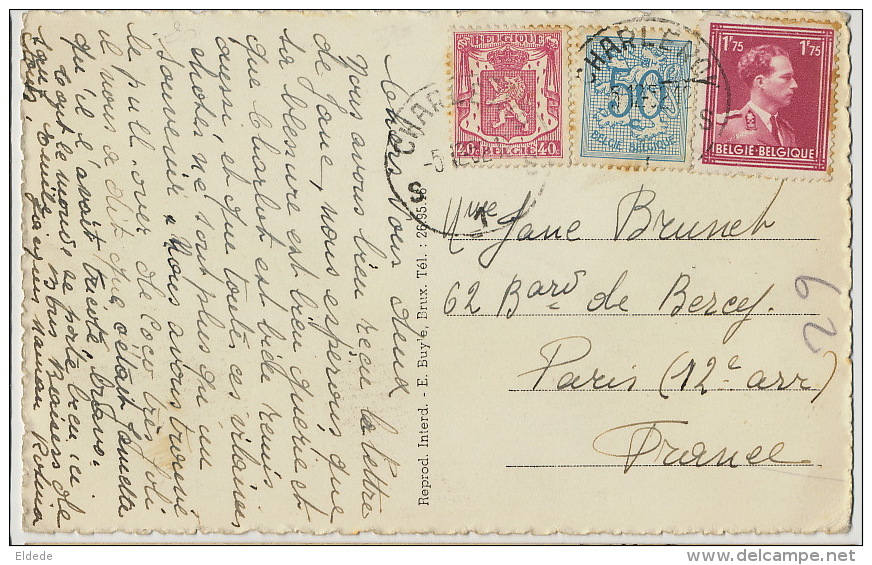 Chers vous deux
Nous avons bien reçu la lettre
de Jane, nous esperons que
sa blessure est bien guerie et
que Charlot est bien remis
aussi et que toutes ces vilaines
choses ne sont plus qu'un
souvenir. Nous avons trouvé
le pull over de Coco très joli
il nous a dit que c'était
qu'il l'avait tricoté, bravo.
tout le monde se porte bien ici
Bons Baisers de
tous, Emile Jacques Maman
BELGIQUE
40c BELGIE 40c
50
BELGIE-BELGIQUE
1F75 1F75
BELGIE-BELGIQUE
CHARLEROI
CHARLEROI
Reprod. Interd. - E. Buyle, Brux. Tél. : 26.95.96
Mme Jane Brunet
62 Bard de Bercy.
Paris (12e arr)
France
62
Eldede
delcampe.net